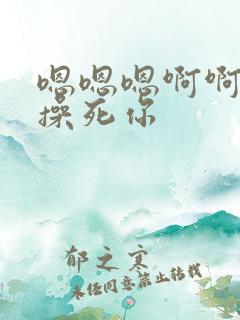 嗯嗯嗯啊啊
操死你
郁之寒
未经同意禁止转载